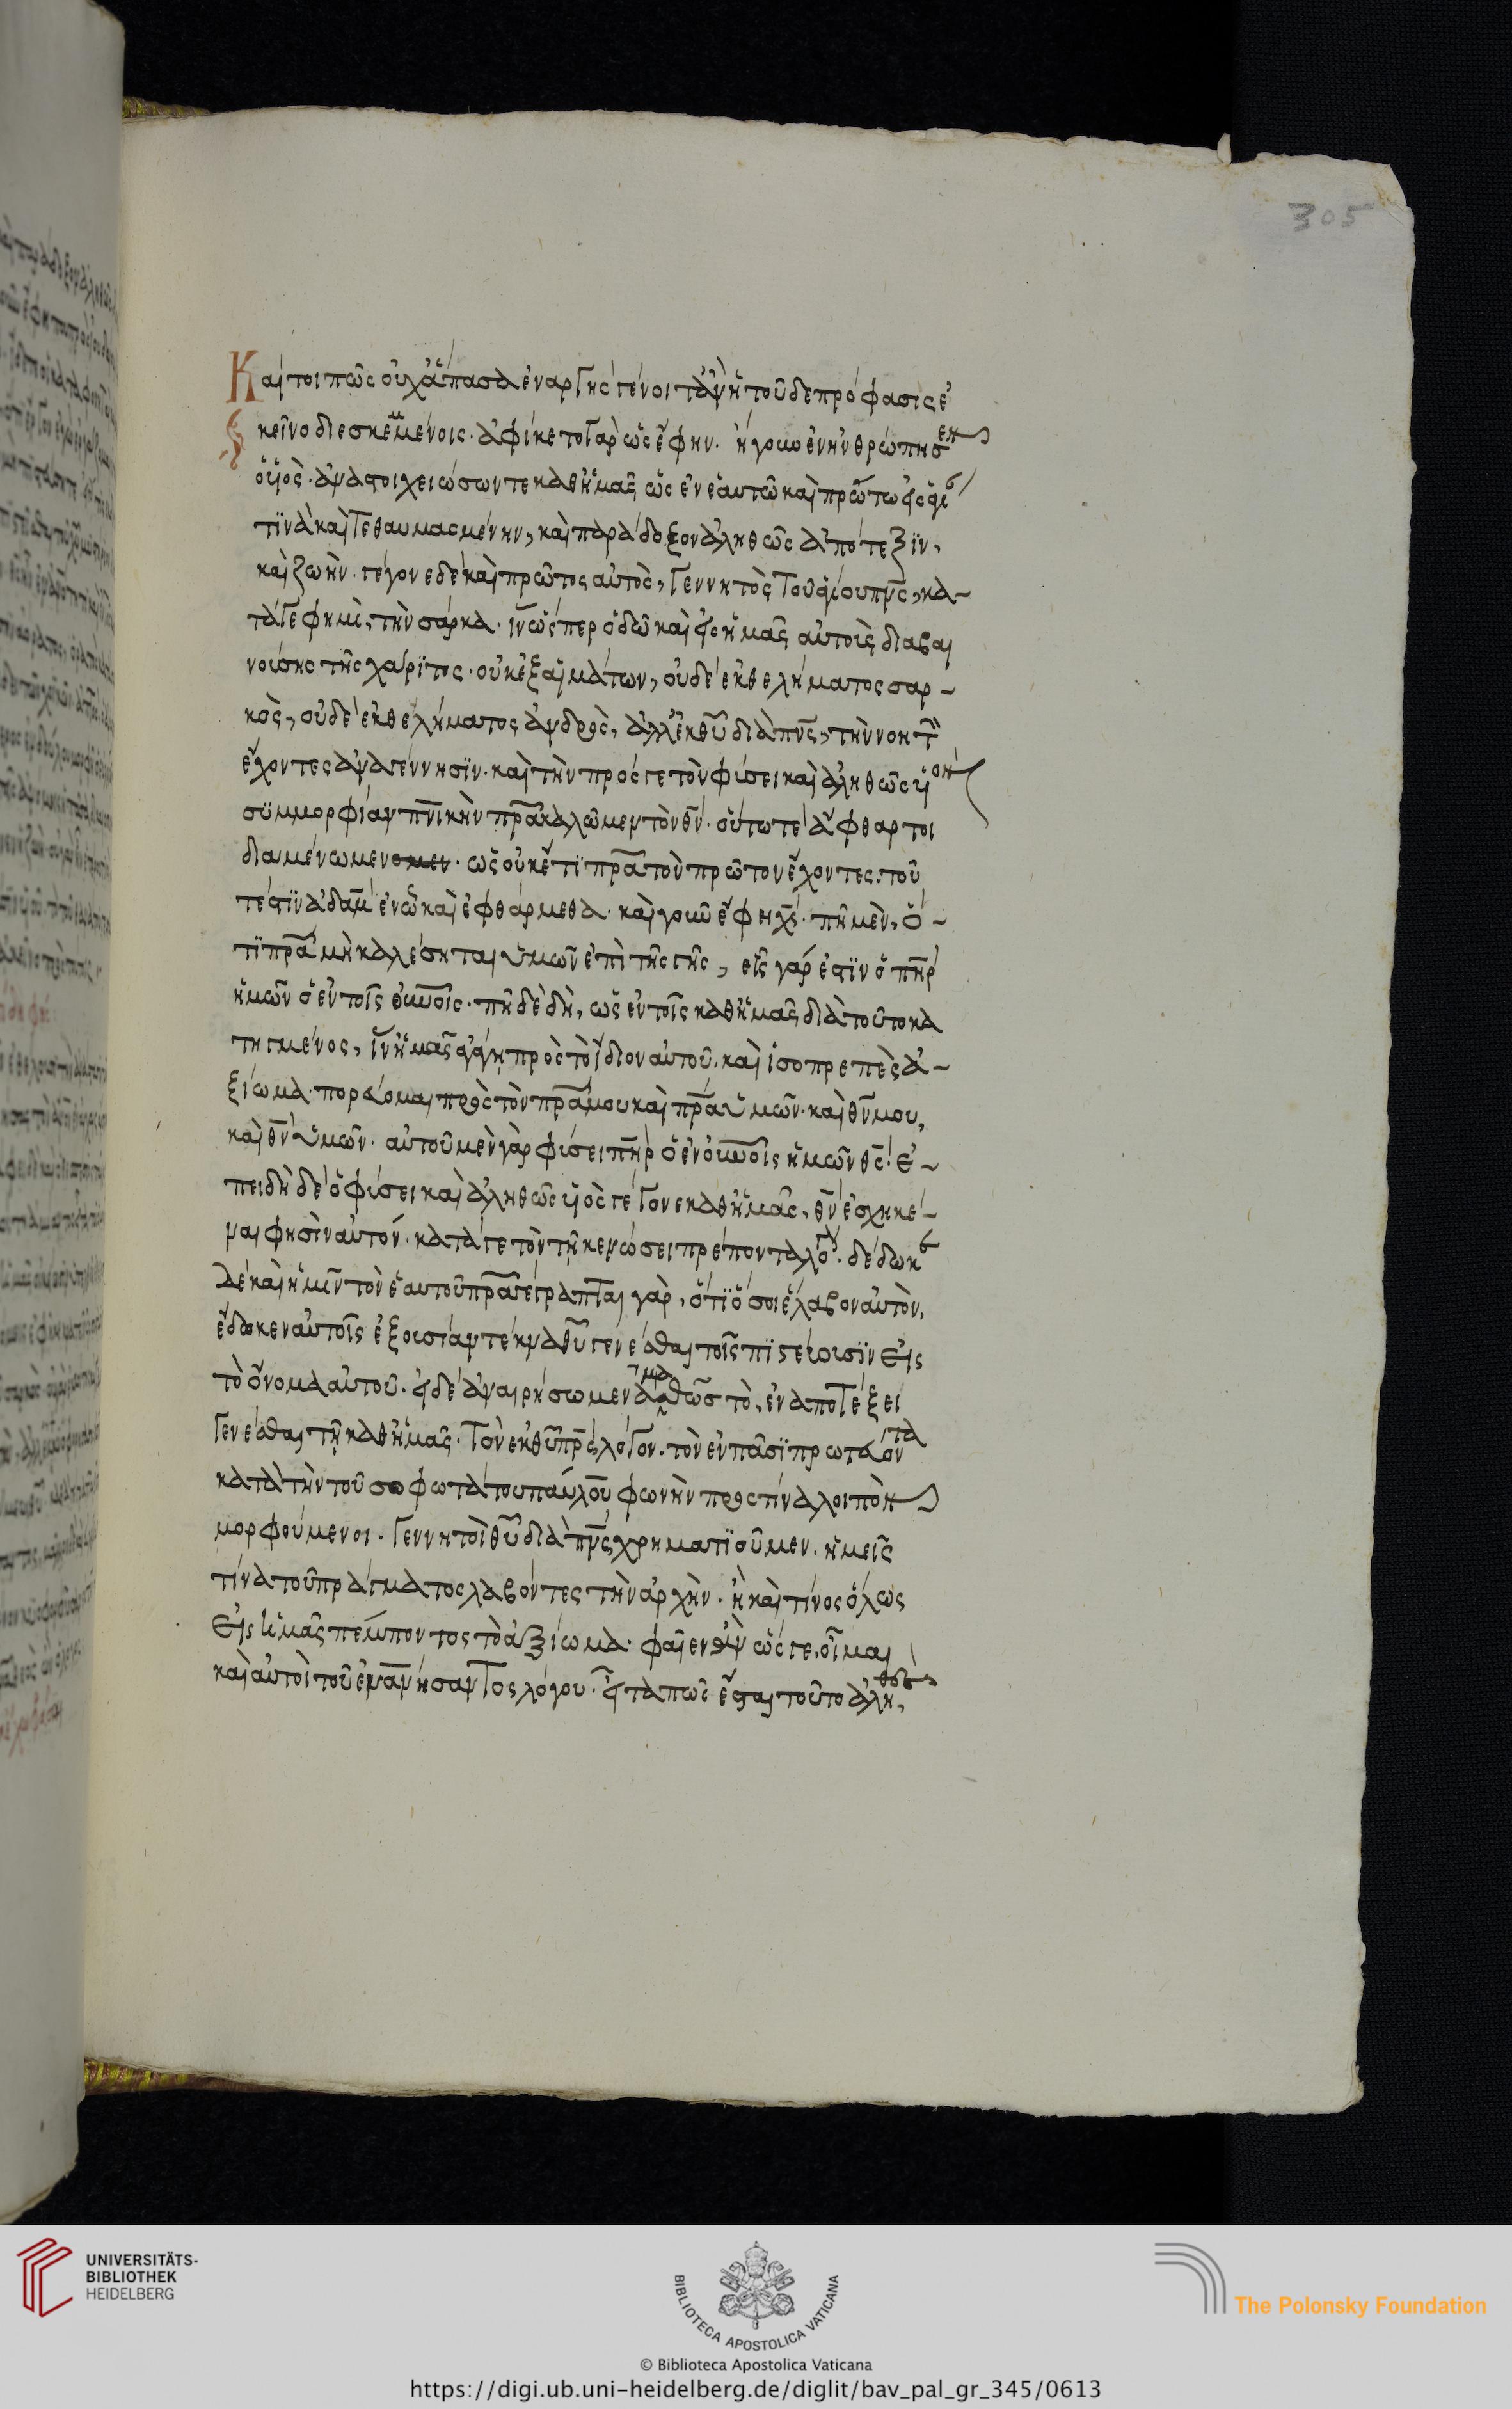 305
Καίτοι πῶς οὐχ ἅπασα ἐναργὴς γένοιτ' ἂν ἡ τοῦδε πρόφασις ἐ
κεῖνο διεσκεμμένοις· ἀφίκετο γὰρ ὡς ἔφην. ἤγουν ἐνηνθρώπησεν
ὁ υἱός· ἀναστοιχειώσων τε καθ' ἡμᾶς ὡς ἐν ἑαυτῶ καὶ πρώτω εἰς ἁγί
τινὰ καὶ τεθαυμασμένην, καὶ παράδοξον ἀληθῶς ἀπότεξϊν,
καὶ ζωήν. γέγονε δὲ καὶ πρῶτος αὐτὸς, γεννητὸς τοῦ ἁγίου πνς, κα-
τά γε φημὶ, τὴν σάρκα· ἵν' ὥσπερ ὁδῶ καὶ εἰς ἡμᾶς αὐτοὺς διαβαι
νούσης τῆς χάρϊτος· οὐκ ἐξ αἱμάτων, οὐδὲ ἐκ θελήματος σαρ-
κὸς, οὐδὲ ἐκ θελήματος ἀνδρὸς, ἀλλ' ἐκ θυ διὰ πνς, τὴν νοητὴν
ἔχοντες ἀναγέννησϊν· καὶ τὴν πρός γε τὸν φύσει καὶ ἀληθῶς υἱὸν
συμμορφίαν πνικὴν πρα καλῶμεν τὸν θν· οὕτω τε ἄφθαρτοι
διαμένωμεν ομεν· ὡς οὐκ ἔτϊ πρα τὸν πρῶτον ἔχοντες· του
τέστϊν ἀδὰμ ἐν ὧ καὶ ἐφθάρμεθα· καὶ γοῦν ἔφη χς· πῆ μὲν, ὅ-
τϊ πρα μὴ καλέσηται ὑμῶν ἐπὶ τῆς γῆς, εἷς γάρ ἐστϊν ὁ πηρ
ἡμῶν ὁ ἐν τοῖς ουνοις· πῆ δὲ δὴ, ὡς ἐν τοῖς καθ' ἡμᾶς διὰ τοῦτο κα
τηγμένος, ἵν' ἡμᾶς ἀγάγῃ πρὸς τὸ ἴδιον αὐτοῦ· καὶ ἰσοπρεπὲς ἀ-
ξίωμα· πορεύομαι πρὸς τὸν πρα μου καὶ πρα ὑμῶν· καὶ θν μου,
καὶ θν ὑμῶν· αὐτοῦ μὲν γὰρ φύσει πηρ ὁ ἐν ουνοις ἡμῶν θς· ἐ-
πειδὴ δὲ ὁ φύσει καὶ ἀληθῶς υἱὸς γέγονε καθ' ἡμᾶς, θν ἐσχηκέ-
ναι φησὶν αὐτόν· κατά γε τὸν τῆ κενώσει πρέποντα λόγον· δέδωκε
δὲ καὶ ἡμῖν τὸν ἑαυτοῦ πρα· γέγραπται γὰρ, ὅτϊ ὅσοι ἔλαβον αὐτὸν,
ἔδωκεν αὐτοῖς ἐξουσίαν τέκνα θυ γενέσθαι τοῖς πϊστεύουσϊν εἰς
τὸ ὄνομα αὐτοῦ· εἰ δὲ ἀναιρήσωμεν ἀμαθῶς τὸ, ἐν ἀποτέξει
γενέσθαι τῆ καθ' ἡμᾶς· τὸν ἐκ θυ πρς λόγον· τὸν ἐν πᾶσϊ πρωτεύοντα
κατὰ τὴν τοῦ σοφωτάτου παύλου φωνὴν πρὸς τίνα λοιπὸν
μορφούμενοι· γεννητοὶ θυ διὰ πνς χρηματϊοῦμεν· ἡμεῖς
τίνα τοῦ πράγματος λαβόντες τὴν ἀρχὴν· ἢ καὶ τίνος ὅλως
εἰς ἡμᾶς πέμποντος τὸ ἀξίωμα· φαῖεν ἂν ὥς γε, οἶμαι
καὶ αὐτοὶ τοῦ ἐνανησαντος λόγου· εἶτα πῶς ἔσται τοῦτο ἀληθὲς,
UNIVERSITÄTS-
BIBLIOTHEK
HEIDELBERG
BIBLIOTECA APOSTOLICA VATICANA
The Polonsky Foundation
© Biblioteca Apostolica Vaticana
https://digi.ub.uni-heidelberg.de/diglit/bav_pal_gr_345/0613